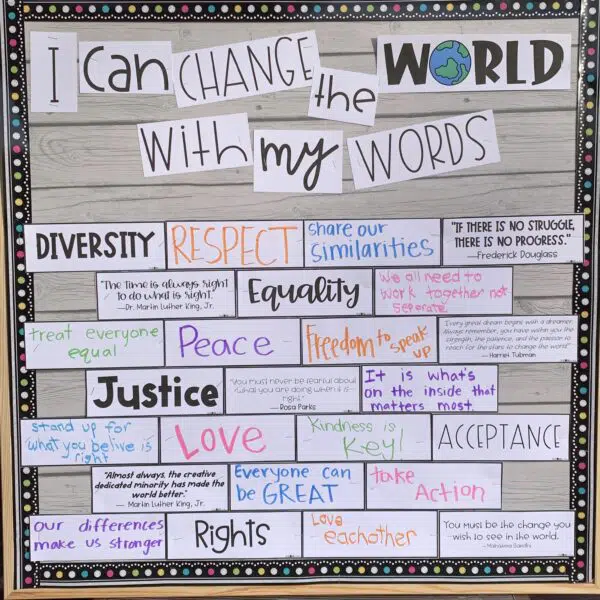 I Can CHANGE the WORLD
With my WORDS
DIVERSITY
RESPECT
share our
similarities
"IF THERE IS NO STRUGGLE,
THERE IS NO PROGRESS."
—Frederick Douglass
"The time is always right
to do what is right."
—Dr. Martin Luther King, Jr.
Equality
We all need to
work together not
separate
treat everyone
equal
Peace
Freedom to speak
up
Every great dream begins with a dreamer.
Always remember, you have within you the
strength, the patience, and the passion
to reach for the stars to change the world."
— Harriet Tubman
Justice
"You must never be fearful about
what you are doing when it is
right."
— Rosa Parks
It is what's
on the inside that
matters most.
stand up for
what you belive is
right
Love
Kindness is
Key!
ACCEPTANCE
"Almost always, the creative
dedicated minority has made the
world better."
— Martin Luther King, Jr.
Everyone can
be GREAT
take
Action
our differences
make us stronger
Rights
Love
eachother
You must be the change you
wish to see in the world.
- Mahatma Gandhi